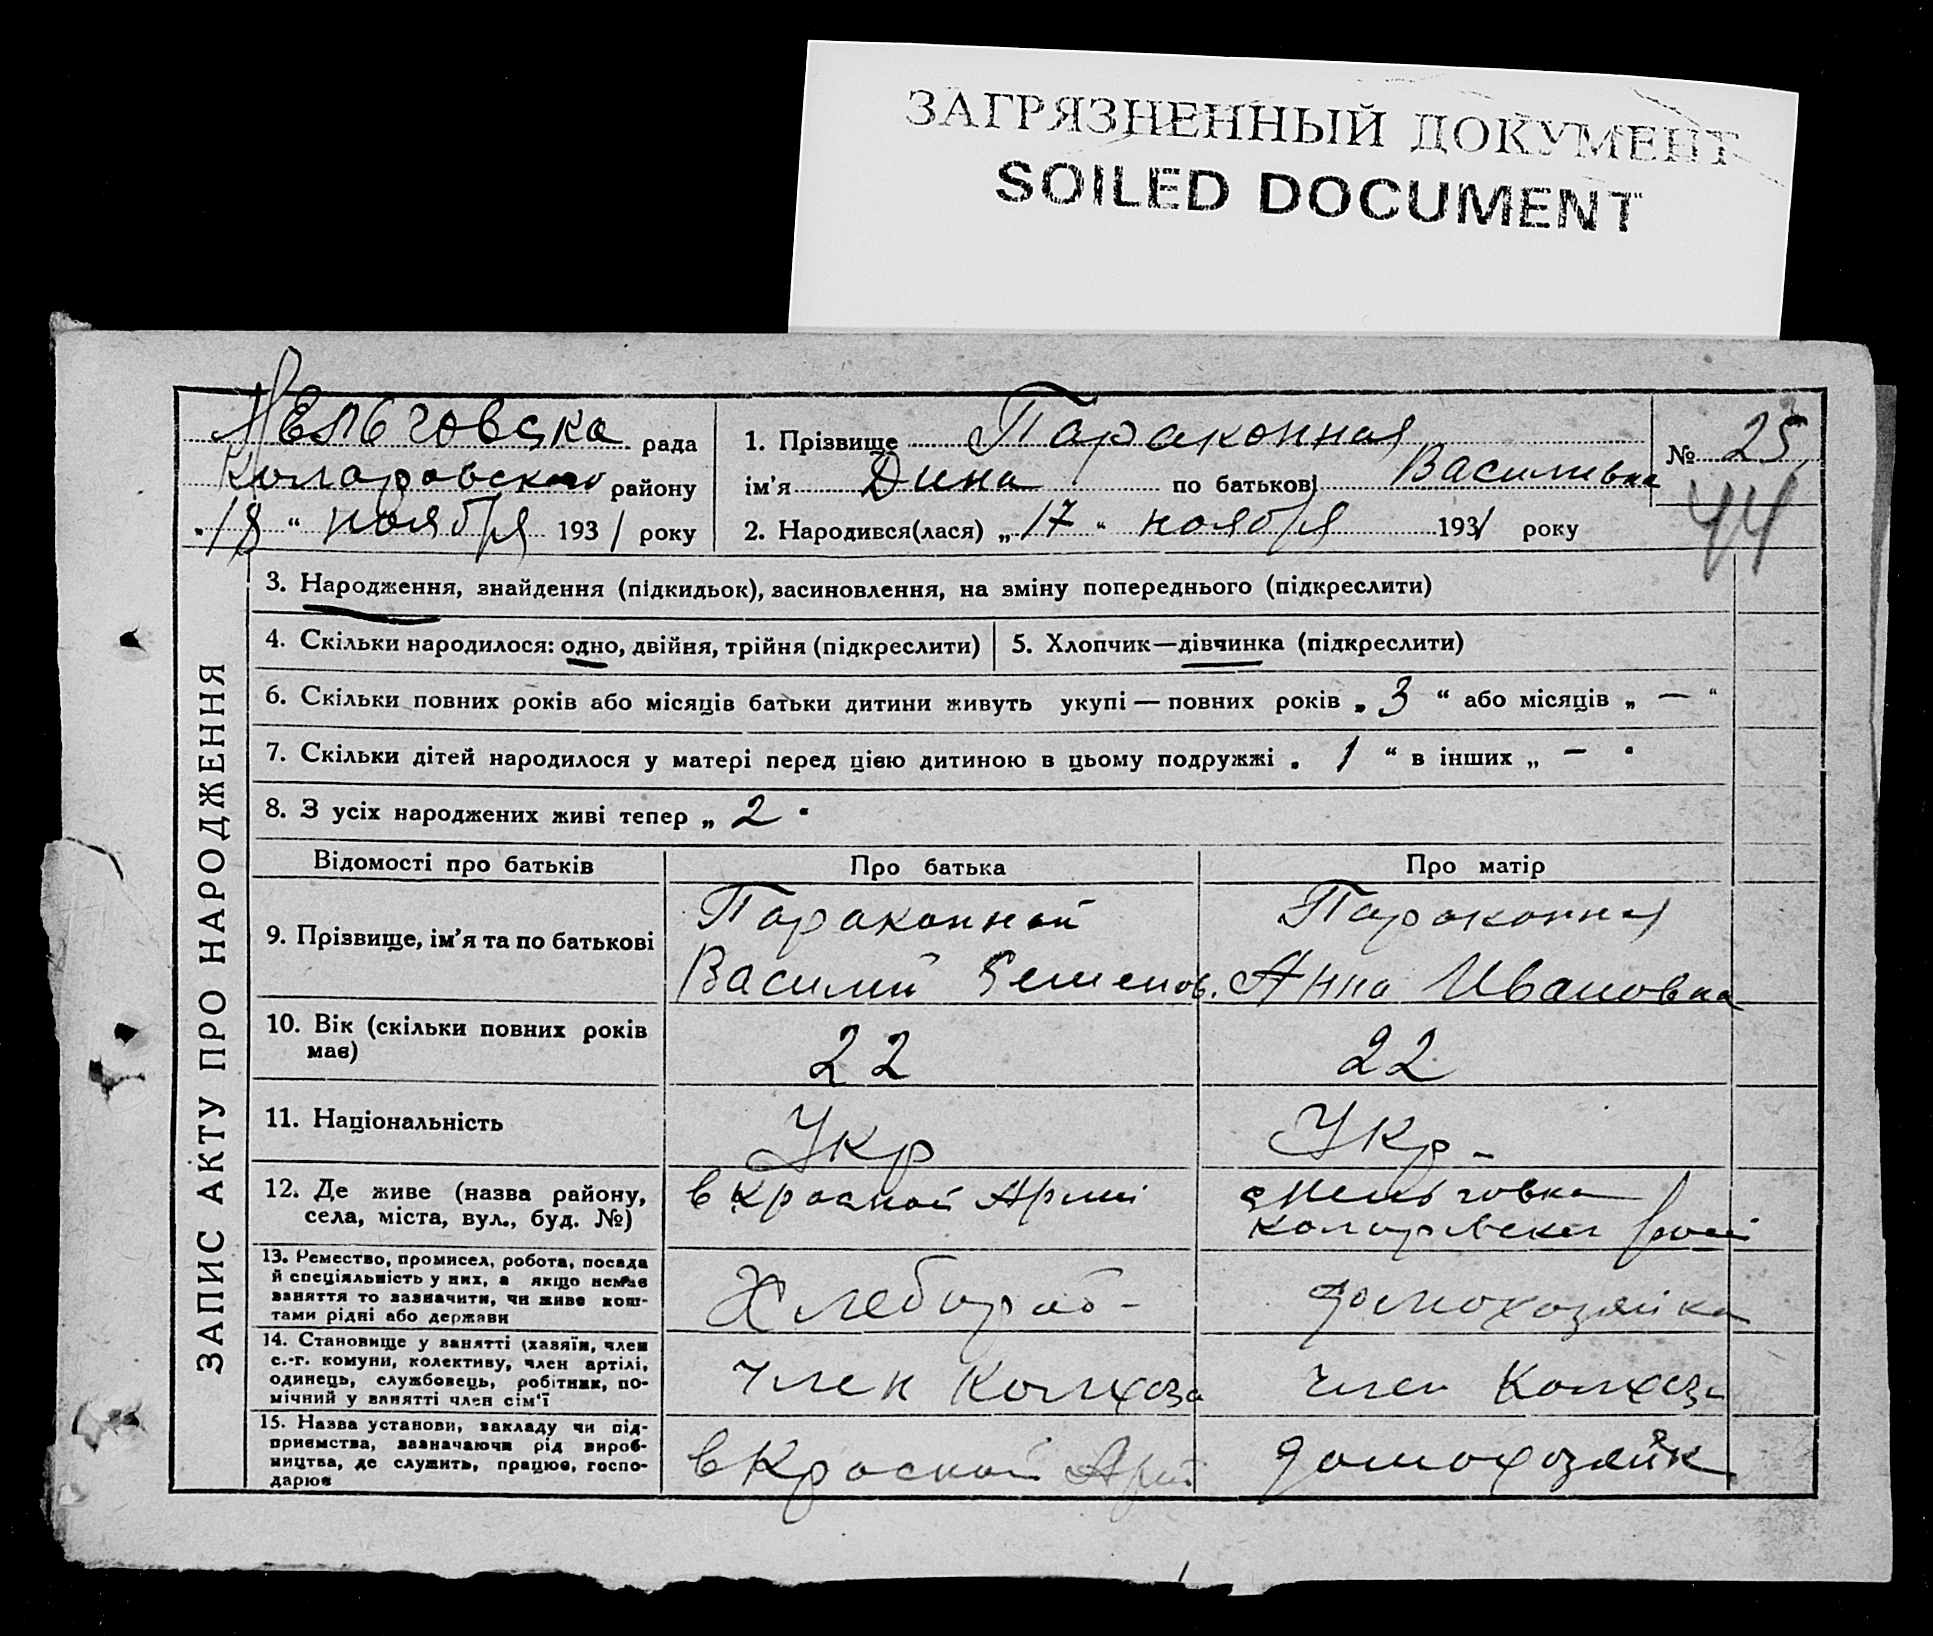 ЗАГРЯЗНЕННЫЙ ДОКУМЕНТ
SOILED DOCUMENT
Нельговска рада
Коларовского району
„18“ ноября 1931 року
1. Прізвище Параконная
ім'я Дина по батькові Василивна
2. Народився(лася) „17“ ноября 1931 року
№ 25
44
ЗАПИС АКТУ ПРО НАРОДЖЕННЯ
3. Народження, знайдення (підкидьок), засиновлення, на зміну попереднього (підкреслити)
4. Скільки народилося: одно, двійня, трійня (підкреслити)
5. Хлопчик—дівчинка (підкреслити)
6. Скільки повних років або місяців батьки дитини живуть укупі — повних років „3“ або місяців „—“
7. Скільки дітей народилося у матері перед цією дитиною в цьому подружжі „1“ в інших „—“
8. З усіх народжених живі тепер „2“
Відомості про батьків
Про батька
Про матір
9. Прізвище, ім'я та по батькові
Параконной
Василий Семенов.
Параконная
Анна Ивановна
10. Вік (скільки повних років
має)
22
22
11. Національність
Укр
Укр-
12. Де живе (назва району,
села, міста, вул., буд. №)
в Красной Армии
Коларовска
13. Ремество, промисел, робота, посада
й спеціяльність у них, а якщо немає
заняття то зазначити, чи живе кош-
тами рідні або держави
Хлебороб-
домохозяйка
14. Становище у занятті (хазяїн, член
с.-г. комуни, колективу, член артілі,
одинець, службовець, робітник, по-
мічний у занятті член сім'ї
член Колхоза
член Колхоза
15. Назва установи, закладу чи під-
приємства, зазначаючи рід вироб-
ництва, де служить, працює, госпо-
дарює
в Красной
домохозяйк